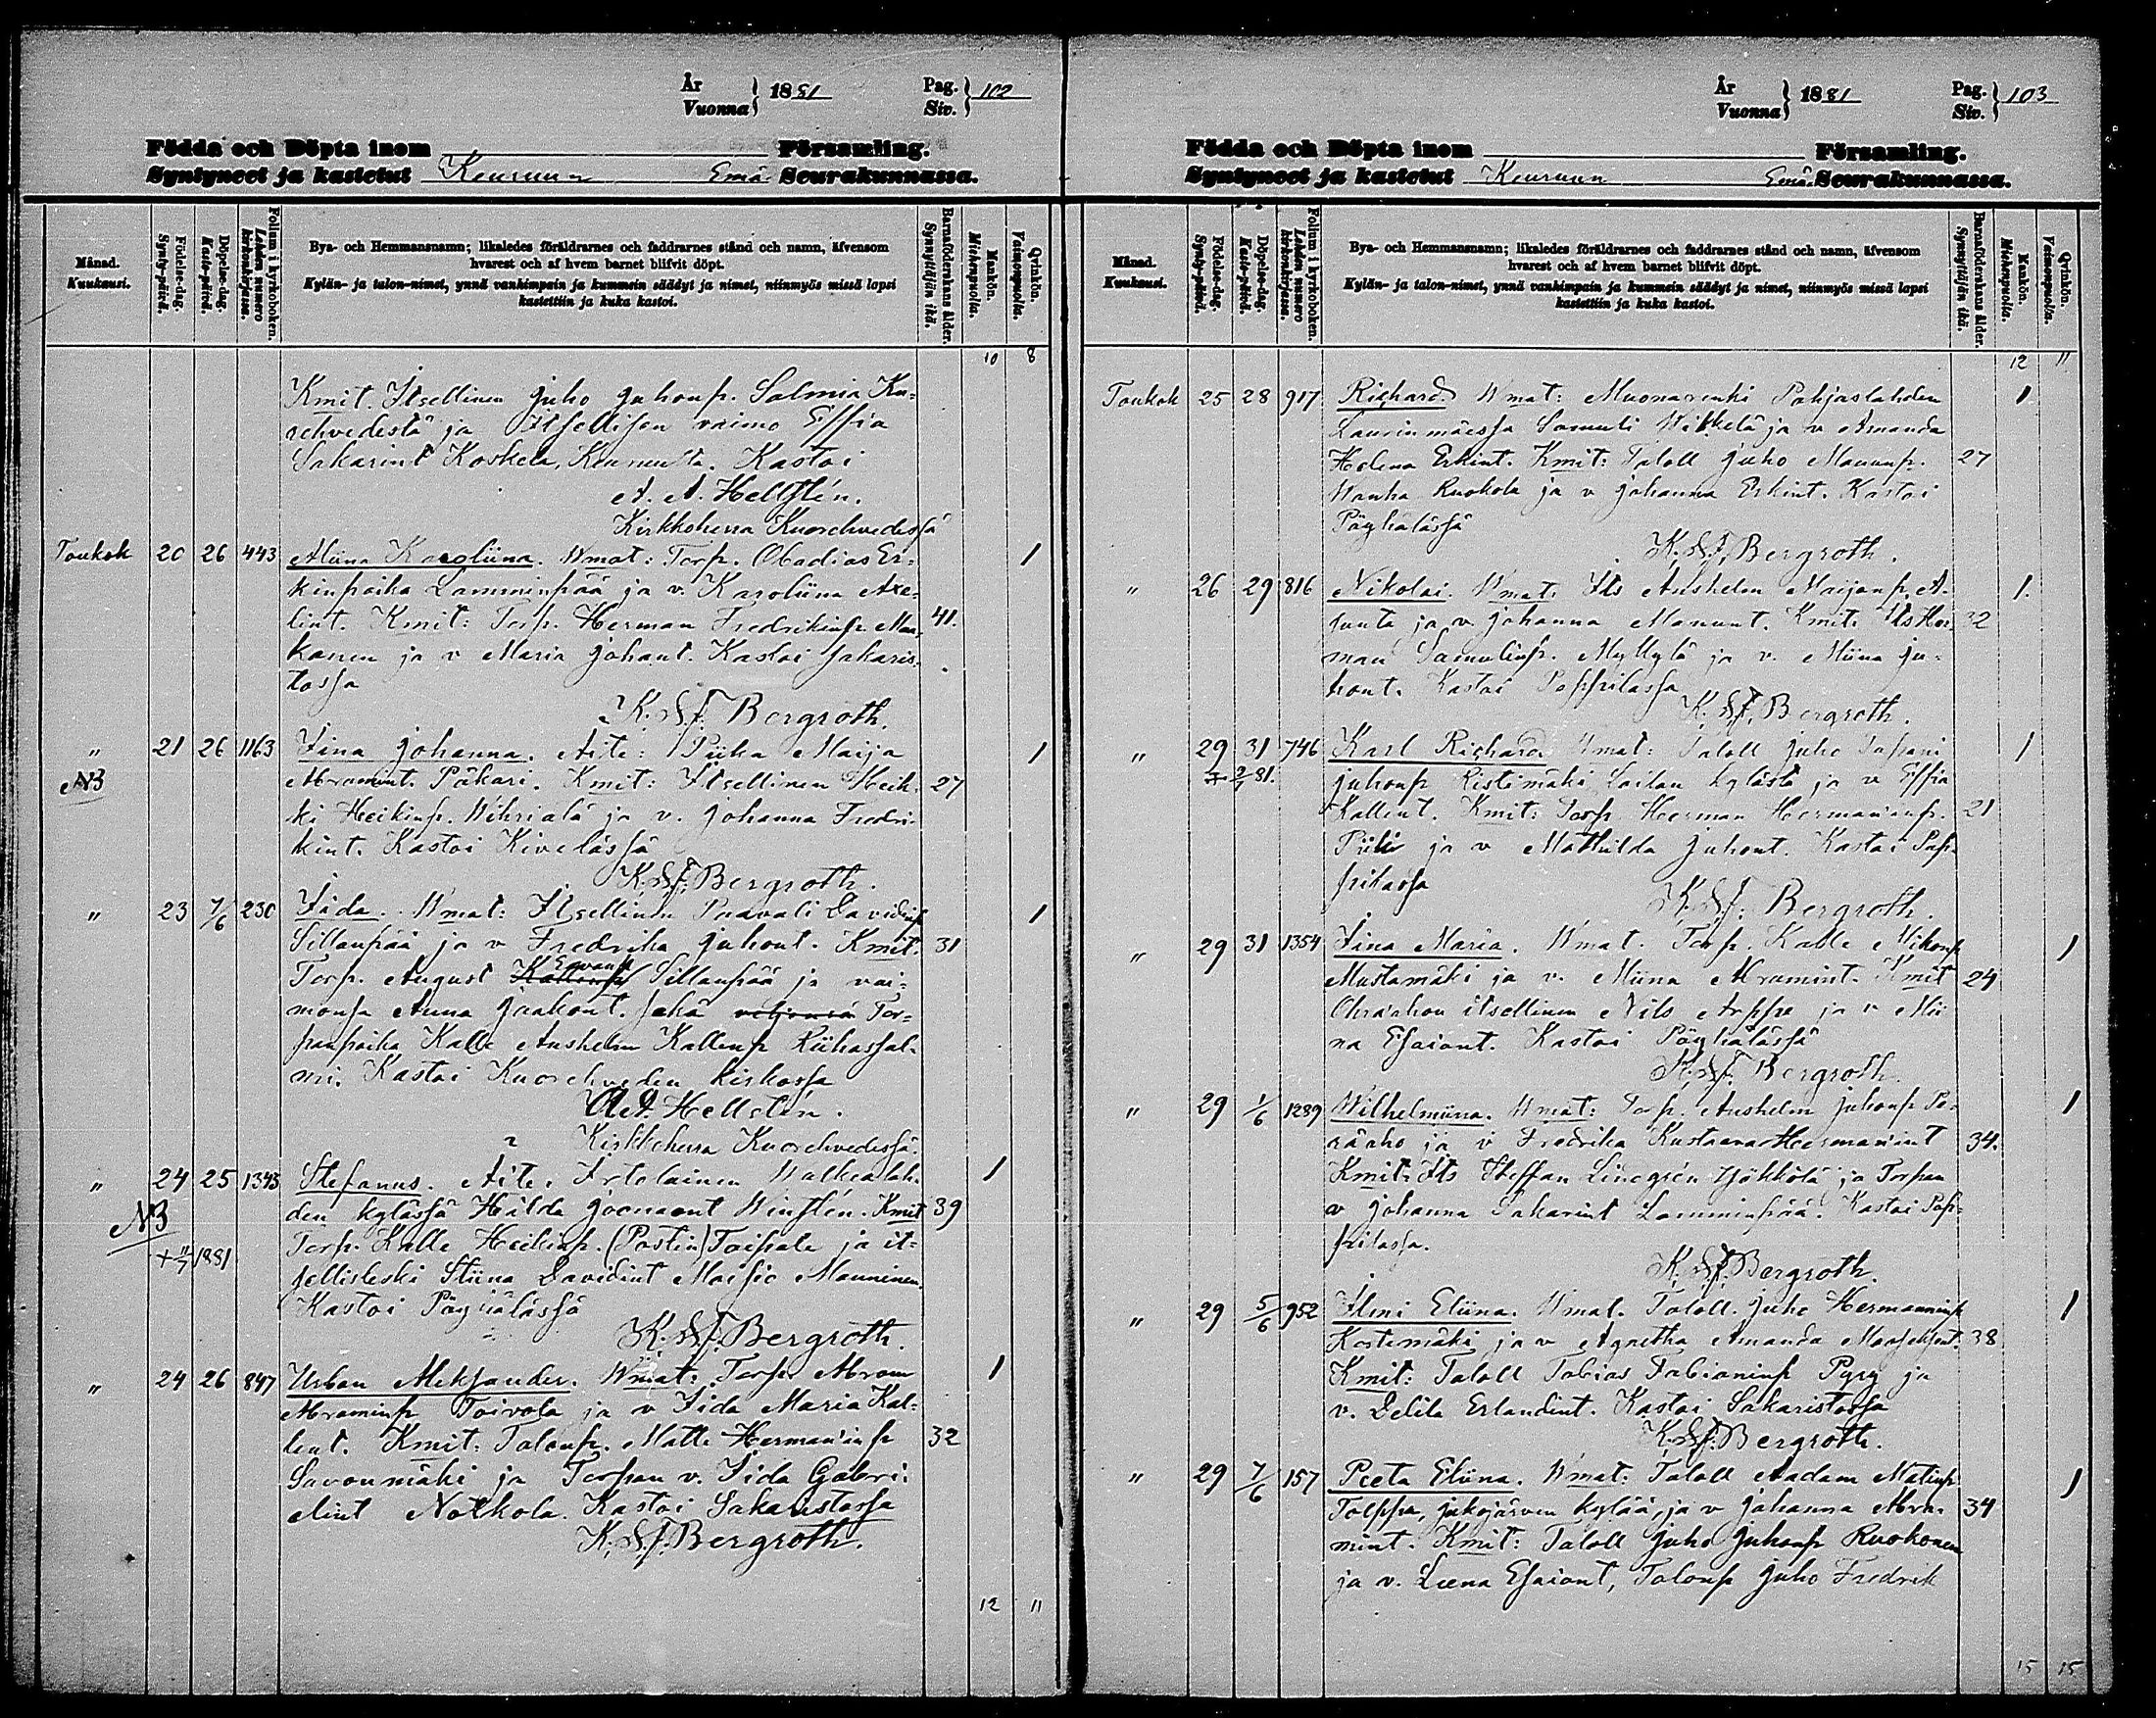 År
Vuonna } 1881
Pag.
Siv. } 102
Födda och Döpta inom Församling.
Syntyneet ja kastetut Keuruun Emä Seurakunnassa.
Månad.
Kuukausi.
Födelse-dag.
Synty-päivä.
Döpelse-dag.
Kaste-päivä.
Folium i kyrkoboken.
Lehden numero kirkonkirjassa.
Bya- och Hemmansnamn; likaledes föräldrarnes och faddrarnes stånd och namn, äfvensom
hvarest och af hvem barnet blifvit döpt.
Kylän- ja talon-nimet, ynnä vanhimpain ja kummein säädyt ja nimet, niinmyös missä lapsi
kastettiin ja kuka kastoi.
Barnaföderskans ålder.
Synnyttäjän ikä.
Mankön.
Miehenpuolia.
Qvinkön.
Vaimonpuolia.
10 8
Kmit. Itsellinen Juho Juhonp. Salmia Ku-
rchvedestä ja Itsellisen vaimo Effia
Sakarint Koskela, Keuruulta. Kastoi
A. A. Hellstén.
Kirkkoherra Kuorchvedessä
Toukok 20 26 443 Miina Karoliina. Wmat: Torp. Obadias Er- 1
kinpoika Lamminpää ja v. Karoliina Axe-
lint. Kmit: Torp. Herman Fredrikinp. 41.
kanen ja v Maria Johant. Kastoi Sakaris-
tossa
K. S. J. Bergroth.
" 21 26 1163 Iina Johanna. Äite: Piika Maija 1
NB Abramint. Päkari. Kmit: Itsellinen Heik- 27
ki Heikinp. Wihriälä ja v. Johanna Fredri-
kint. Kastoi Kivelässä
K. S. J. Bergroth.
" 23 7/6 230 Iida. Wmat: Itsellinen Paavali Davidinp 1
Sillanpää ja v Fredrika Juhont. Kmit. 31
Torp. August Sillanpää ja vai-
monsa Anna Jaakont. Sekä Tor-
panpoika Kalle Anshelm Kallenp Riihassal-
mi. Kastoi Kuorchveden kirkossa
A. A. Hellstén.
Kirkkoherra Kuorchvedessä.
" 24 25 1343 Stefanus. Äite. Irtolainen Walkealah- 1
NB den kylässä Hilda Joonaont Winstén. Kmit 39
+ 11/7 1881 Torp. Kalle Heikinp. (Postin) Taipale ja it-
sellisleski Stiina Davidint Maisio Manninen.
Kastoi Pöyhälässä
K. S. J. Bergroth.
" 24 26 847 Urban Aleksander. Wmat: Torp. Abram 1
Abraminp Toivola ja v Iida Maria Kal-
lent. Kmit: Talonp. Matti Hermaninp 32
Savonmäki ja Torpan v. Iida Gabri-
elint Notkola. Kastoi Sakaristossa
K. S. J. Bergroth.
12 11
År
Vuonna } 1881
Pag.
Siv. } 103
Födda och Döpta inom Församling.
Syntyneet ja kastetut Keuruun Emä Seurakunnassa.
Månad.
Kuukausi.
Födelse-dag.
Synty-päivä.
Döpelse-dag.
Kaste-päivä.
Folium i kyrkoboken.
Lehden numero kirkonkirjassa.
Bya- och Hemmansnamn; likaledes föräldrarnes och faddrarnes stånd och namn, äfvensom
hvarest och af hvem barnet blifvit döpt.
Kylän- ja talon-nimet, ynnä vanhimpain ja kummein säädyt ja nimet, niinmyös missä lapsi
kastettiin ja kuka kastoi.
Barnaföderskans ålder.
Synnyttäjän ikä.
Mankön.
Miehenpuolia.
Qvinkön.
Vaimonpuolia.
12 11
Toukok 25 28 917 Richard Wmat: Muonarenki Pohjaslahden 1
Laurinmäessä Samuli Wikkelä ja v Amanda
Helena Erkint. Kmit: Taloll Juho Manunp. 27
Wanha Ruokola ja v Johanna Erkint. Kastoi
Pöyhälässä
K. S. J. Bergroth.
" 26 29 816 Nikolai. Wmat. Its Anshelm Maijanp. A- 1.
sunta ja v. Johanna Manunt. Kmit. Its Her- 32
man Samulinp. Myllylä ja v. Miina Ju-
hont. Kastoi Pappilassa
K. S. J. Bergroth.
" 29 31 746 Karl Richard Wmat: Taloll Juho Tapani 1
+ 2/7 81. Juhonp Ristimäki kylästä ja v Effia
Kallent. Kmit: Torp Herman Hermaninp. 21
ja v Mathilda Juhont. Kastoi Pap-
pilassa
K. S. J. Bergroth.
" 29 31 1354 Iina Maria. Wmat. Torp. Kalle Mikonp 1
Mustamäki ja v. Miina Abramint. Kmit 24
Ohraahon itsellinen Nils Arppe ja v Mii
na Esaiant. Kastoi Pöyhälässä
K. S. J. Bergroth.
" 29 1/6 1289 Wilhelmiina. Wmat: Torp. Anshelm Juhonp Pa- 1
rääho ja v Fredrika Kustaava Hermanint 34.
Kmit: Its Steffan Linegrén Yökkölä ja Torpan
v Johanna Sakarint Lamminpää. Kastoi Pap-
pilassa.
K. S. J. Bergroth.
" 29 5/6 952 Ilmi Eliina. Wmat. Taloll. Juho Hermanninp 1
Kostemäki ja v Agnetha Amanda 38
Kmit: Taloll Tobias Fabianinp Pyry ja
v. Delila Erlandint. Kastoi Sakaristossa
K. S. J. Bergroth.
" 29 7/6 157 Peeta Eliina. Wmat: Taloll Aadam Matinp 1
Tolppa, Jukojärven kylää, ja v Johanna Abra- 34
mint. Kmit: Taloll Juho Juhonp Ruokonen
ja v. Leena Esaiant, Talonp Juho Fredrik
15 15